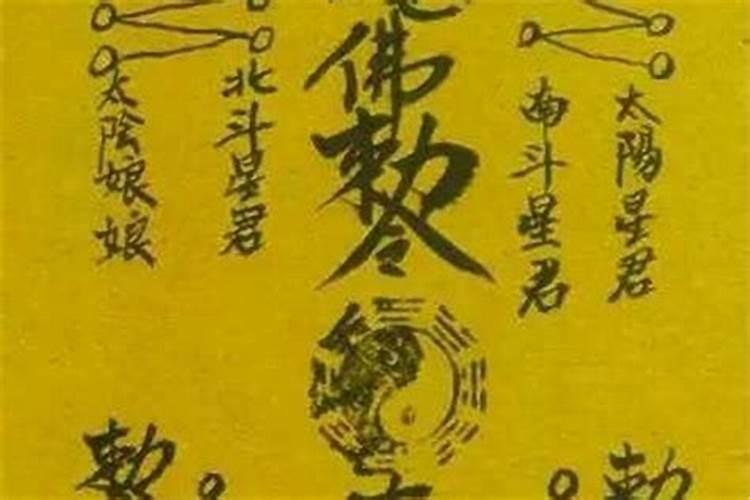 太陽星君
南斗星君
佛敕令
北斗星君
太陰娘娘
敕
敕